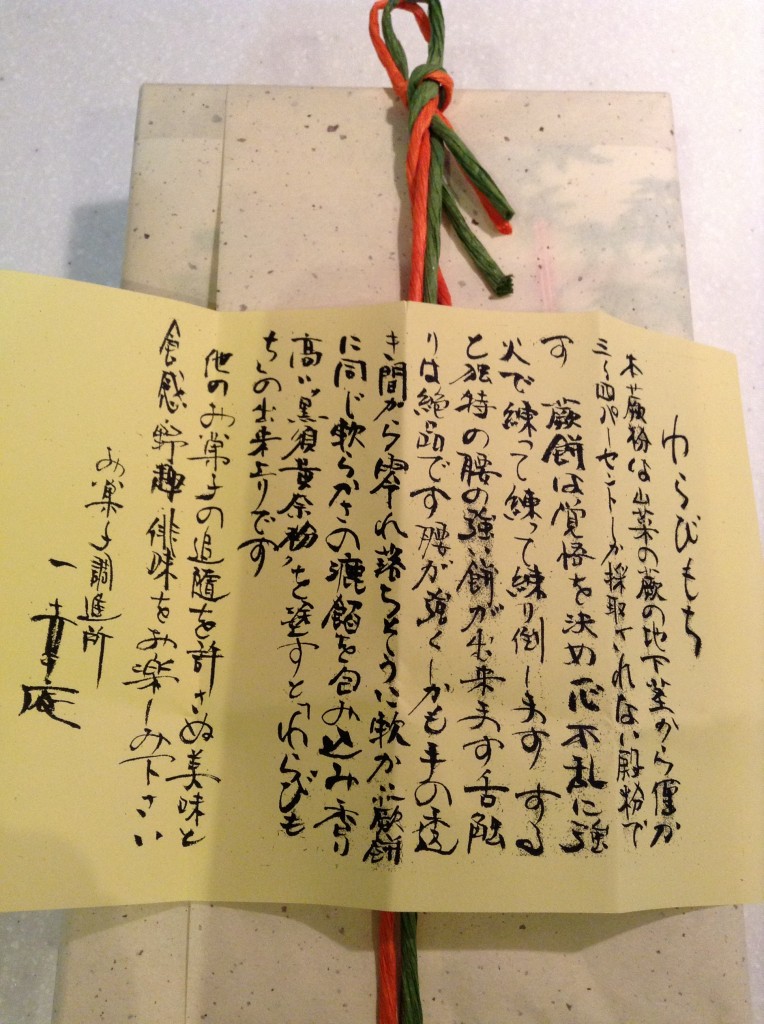 わらびもち
本蕨粉は山菜の蕨の地下茎から僅か
三〜四パーセントしか採取されない澱粉で
す 蕨餅は覚悟を決め一心不乱に強
火で練って練って練り倒します する
と独特の腰の強い餅が出来ます舌触
りは絶品です腰が強くしかも手の透
き間から零れ落ちそうに軟か蕨餅
に同じ軟らかさの漉餡を包み込み香り
高い“黒須黄奈粉”を塗すと「わらびも
ち」の出来上りです
他のお菓子の追随を許さぬ美味と
食感野趣俳味をお楽しみ下さい
お菓子調進所
一幸庵